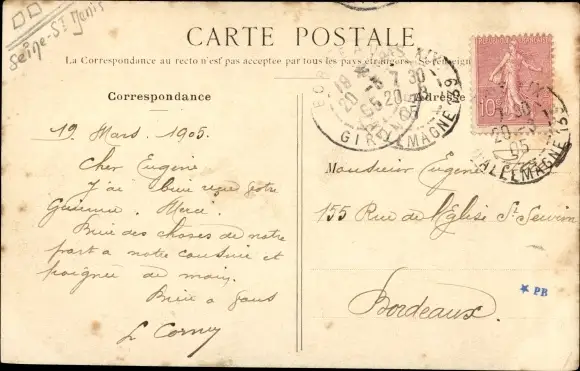 Seine-St Denis
CARTE POSTALE
La Correspondance au recto n'est pas acceptée par tous les pays étrangers. Se renseign
Correspondance
Adresse
19 Mars 1905.
Cher Eugène
J'ai bien reçu votre
Guimma. Merci.
Bien des choses de notre
part a notre cousine et
poignée de main.
Bien a vous
L Corney
Monsieur Eugène
155 Rue de l'Eglise St Seurin
Bordeaux.
10
7 30
20 - 3
05
ALLEMAGNE 159
GIR
* PB